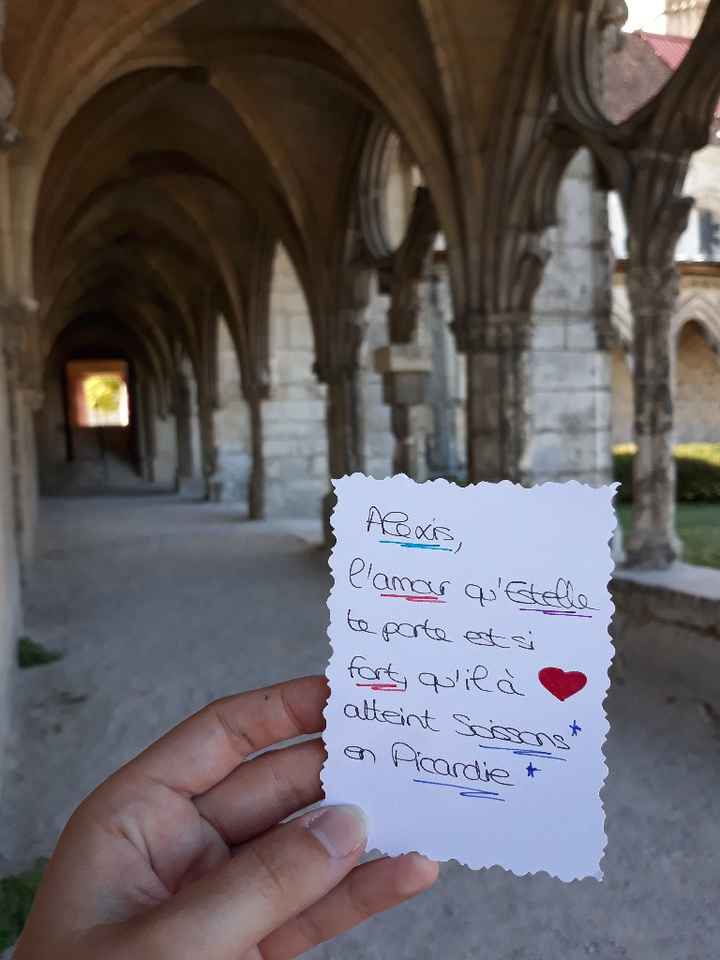 Alexis,
l'amour qu'Estelle
te porte est si
fort, qu'il à
atteint Soissons*
en Picardie*